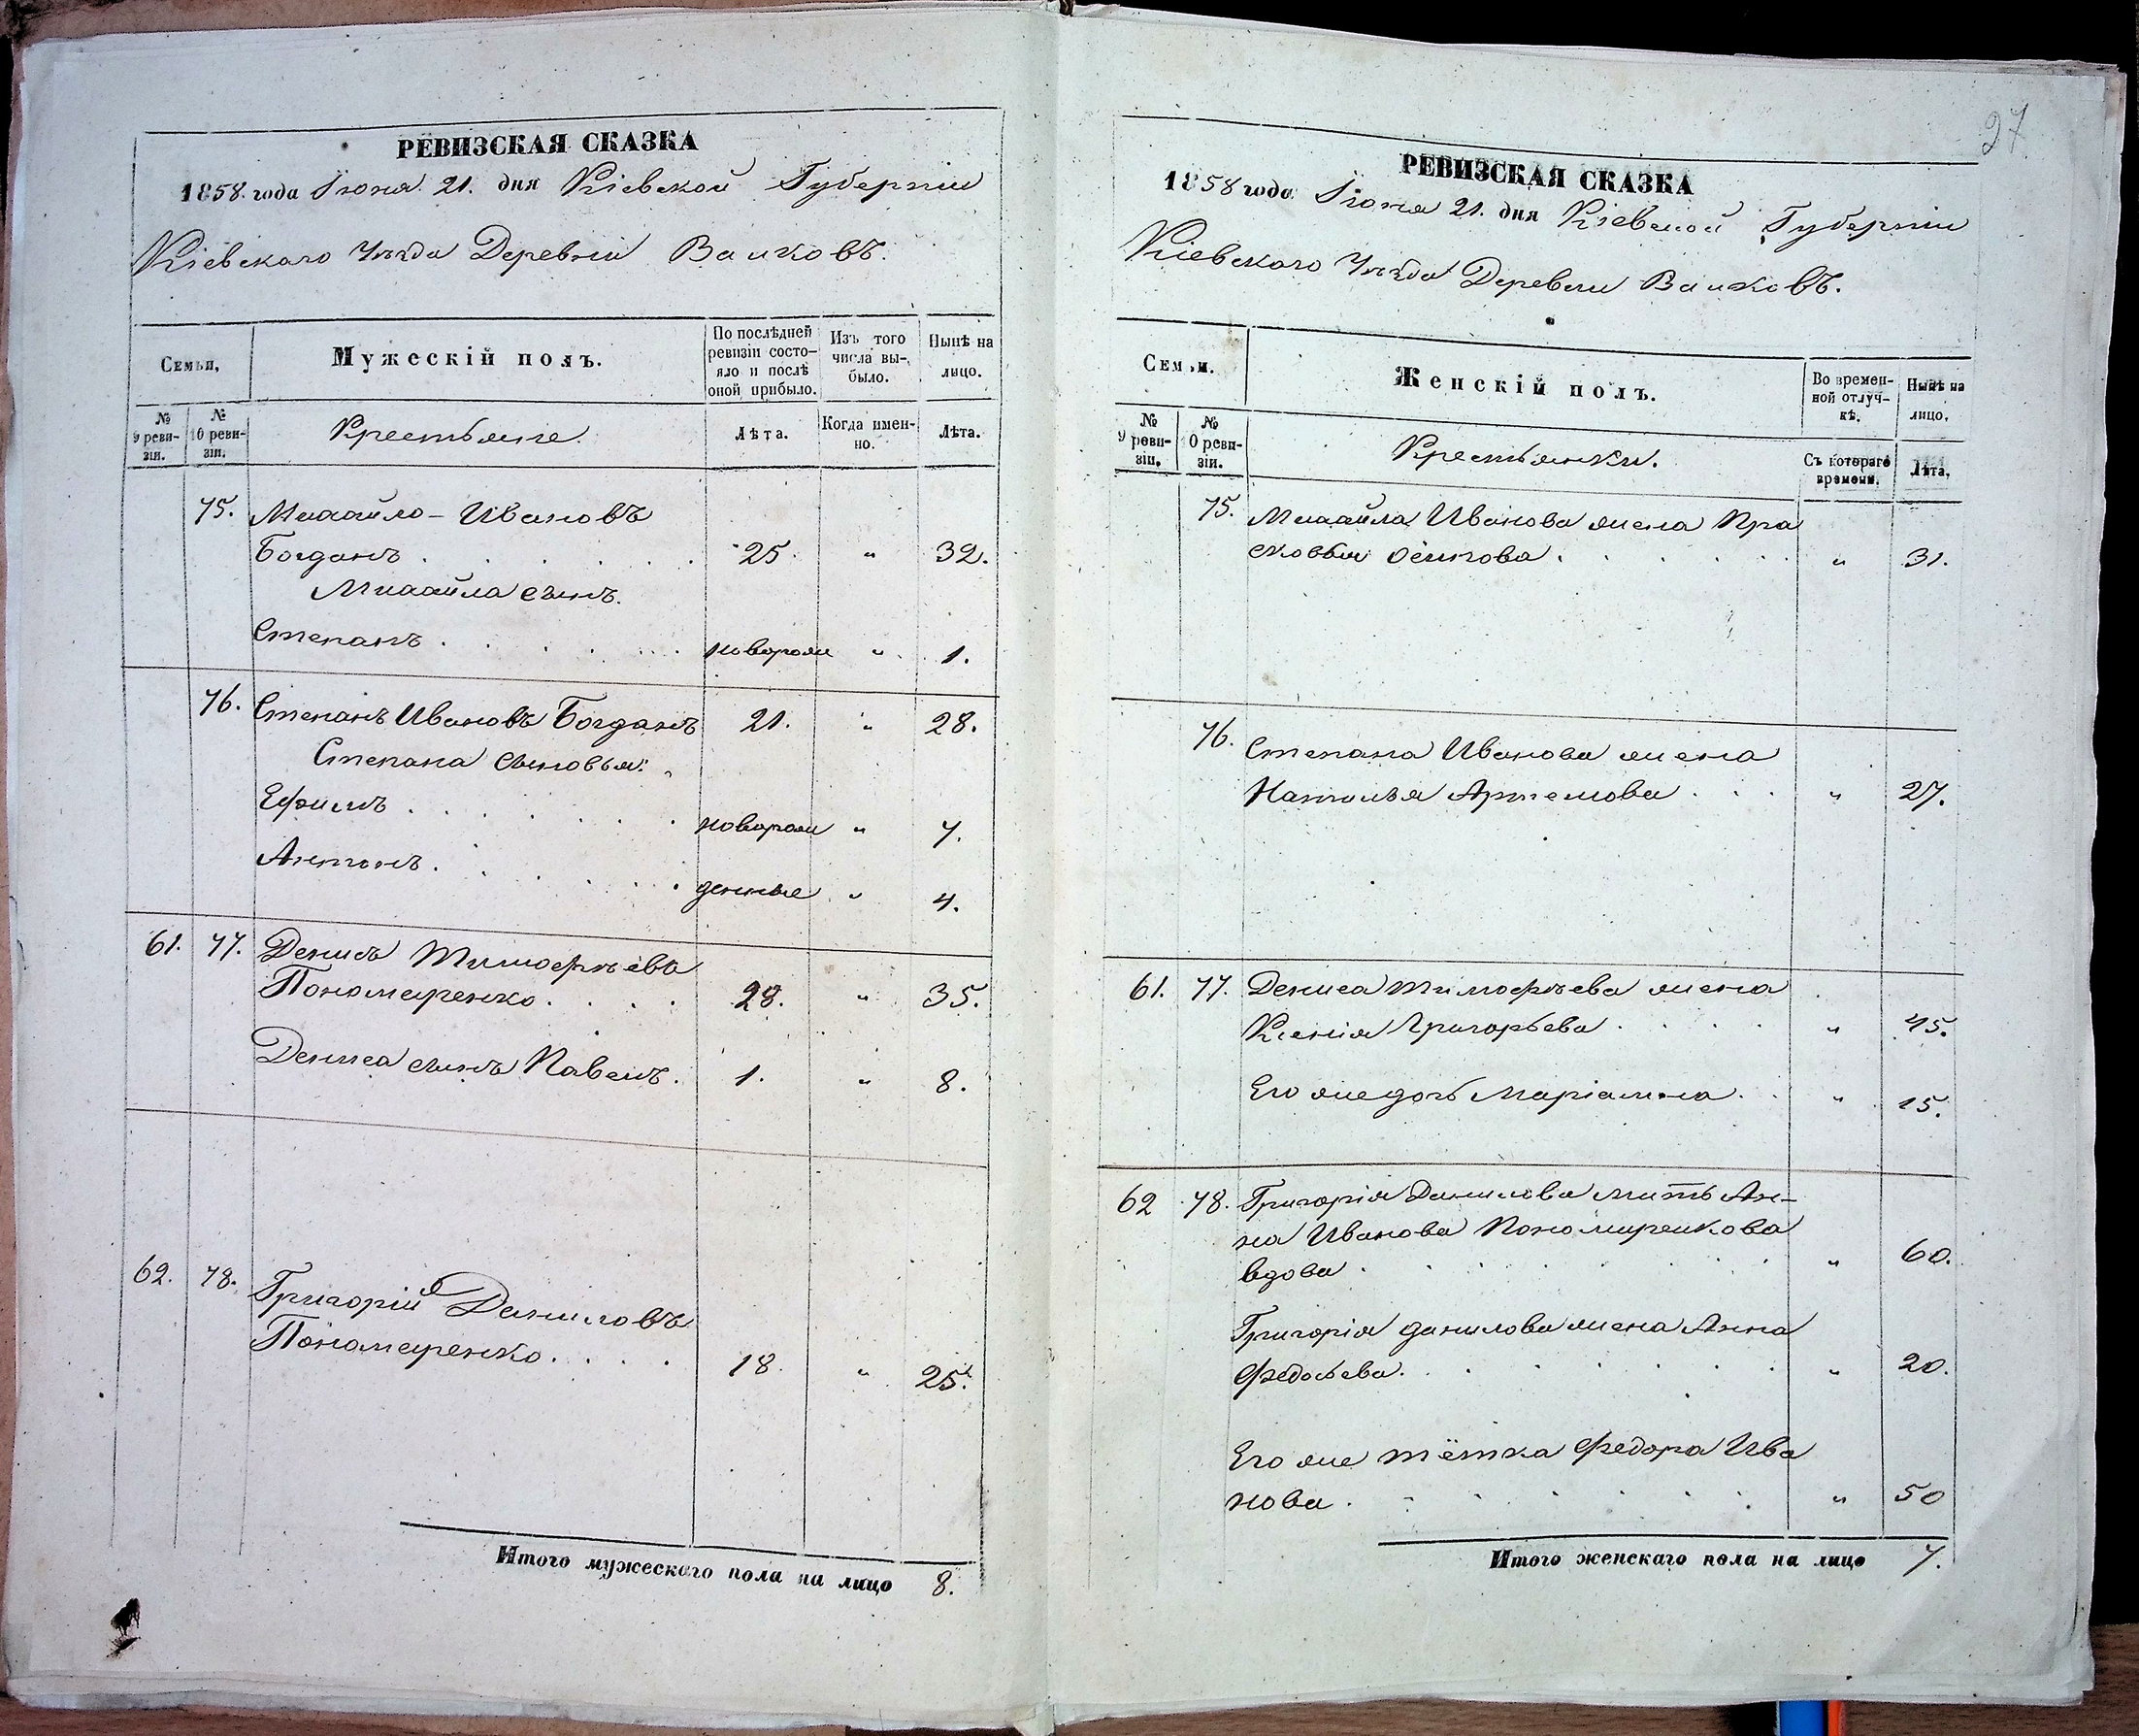 РЕВИЗСКАЯ СКАЗКА
1858 года Іюня 21. дня Кіевской Губерніи
Кіевскаго Уѣзда Деревни
Семьи,
Мужескій полъ.
По послѣдней ревизіи состояло и послѣ оной прибыло.
Изъ того числа выбыло.
Нынѣ на лицо.
№ 9 ревизіи.
№ 10 ревизіи.
Крестьяне
Лѣта.
Когда именно.
Лѣта.
75. Михайло - Ивановъ
Богданъ . . . . . . 25. " 32.
Михайла сынъ.
Степанъ . . . . . . новорож " 1.
76. Степанъ Ивановъ Богданъ 21. " 28.
Степана сыновья:
Ефимъ . . . . . . новорож " 7.
Антонъ . . . . . . денные " 4.
61. 77. Денисъ Тимофѣевъ
Пономаренко . . . . 28. " 35.
Дениса сынъ Павелъ. 1. " 8.
62. 78. Григорій Даниловъ
Пономаренко . . . . 18. " 25.
Итого мужескаго пола на лицо 8.
27
РЕВИЗСКАЯ СКАЗКА
1858 года Іюня 21. дня Кіевской Губерніи
Кіевскаго Уѣзда Деревни
Семьи.
Женскій полъ.
Во временной отлучкѣ.
Нынѣ на лицо.
№ 9 ревизіи.
№ 0 ревизіи.
Крестьянки.
Съ котораго времени.
Лѣта.
75. Михайла Иванова жена Пра
сковья Осипова . . . . . " 31.
76. Степана Иванова жена
Наталья Артемова . . . " 27.
61. 77. Дениса Тимофѣева жена
Ксенія Григорьева . . . . " 45.
Его же дочь Маріанна . . " 15.
62 78. Григорія Данилова мать Ан-
на Иванова Пономаренкова
вдова . . . . . . . . " 60.
Григорія Данилова жена Анна
Федосѣева . . . . . . . " 20.
Его же тётка Федора Ива
нова . . . . . . . . " 50
Итого женскаго пола на лицо 7.